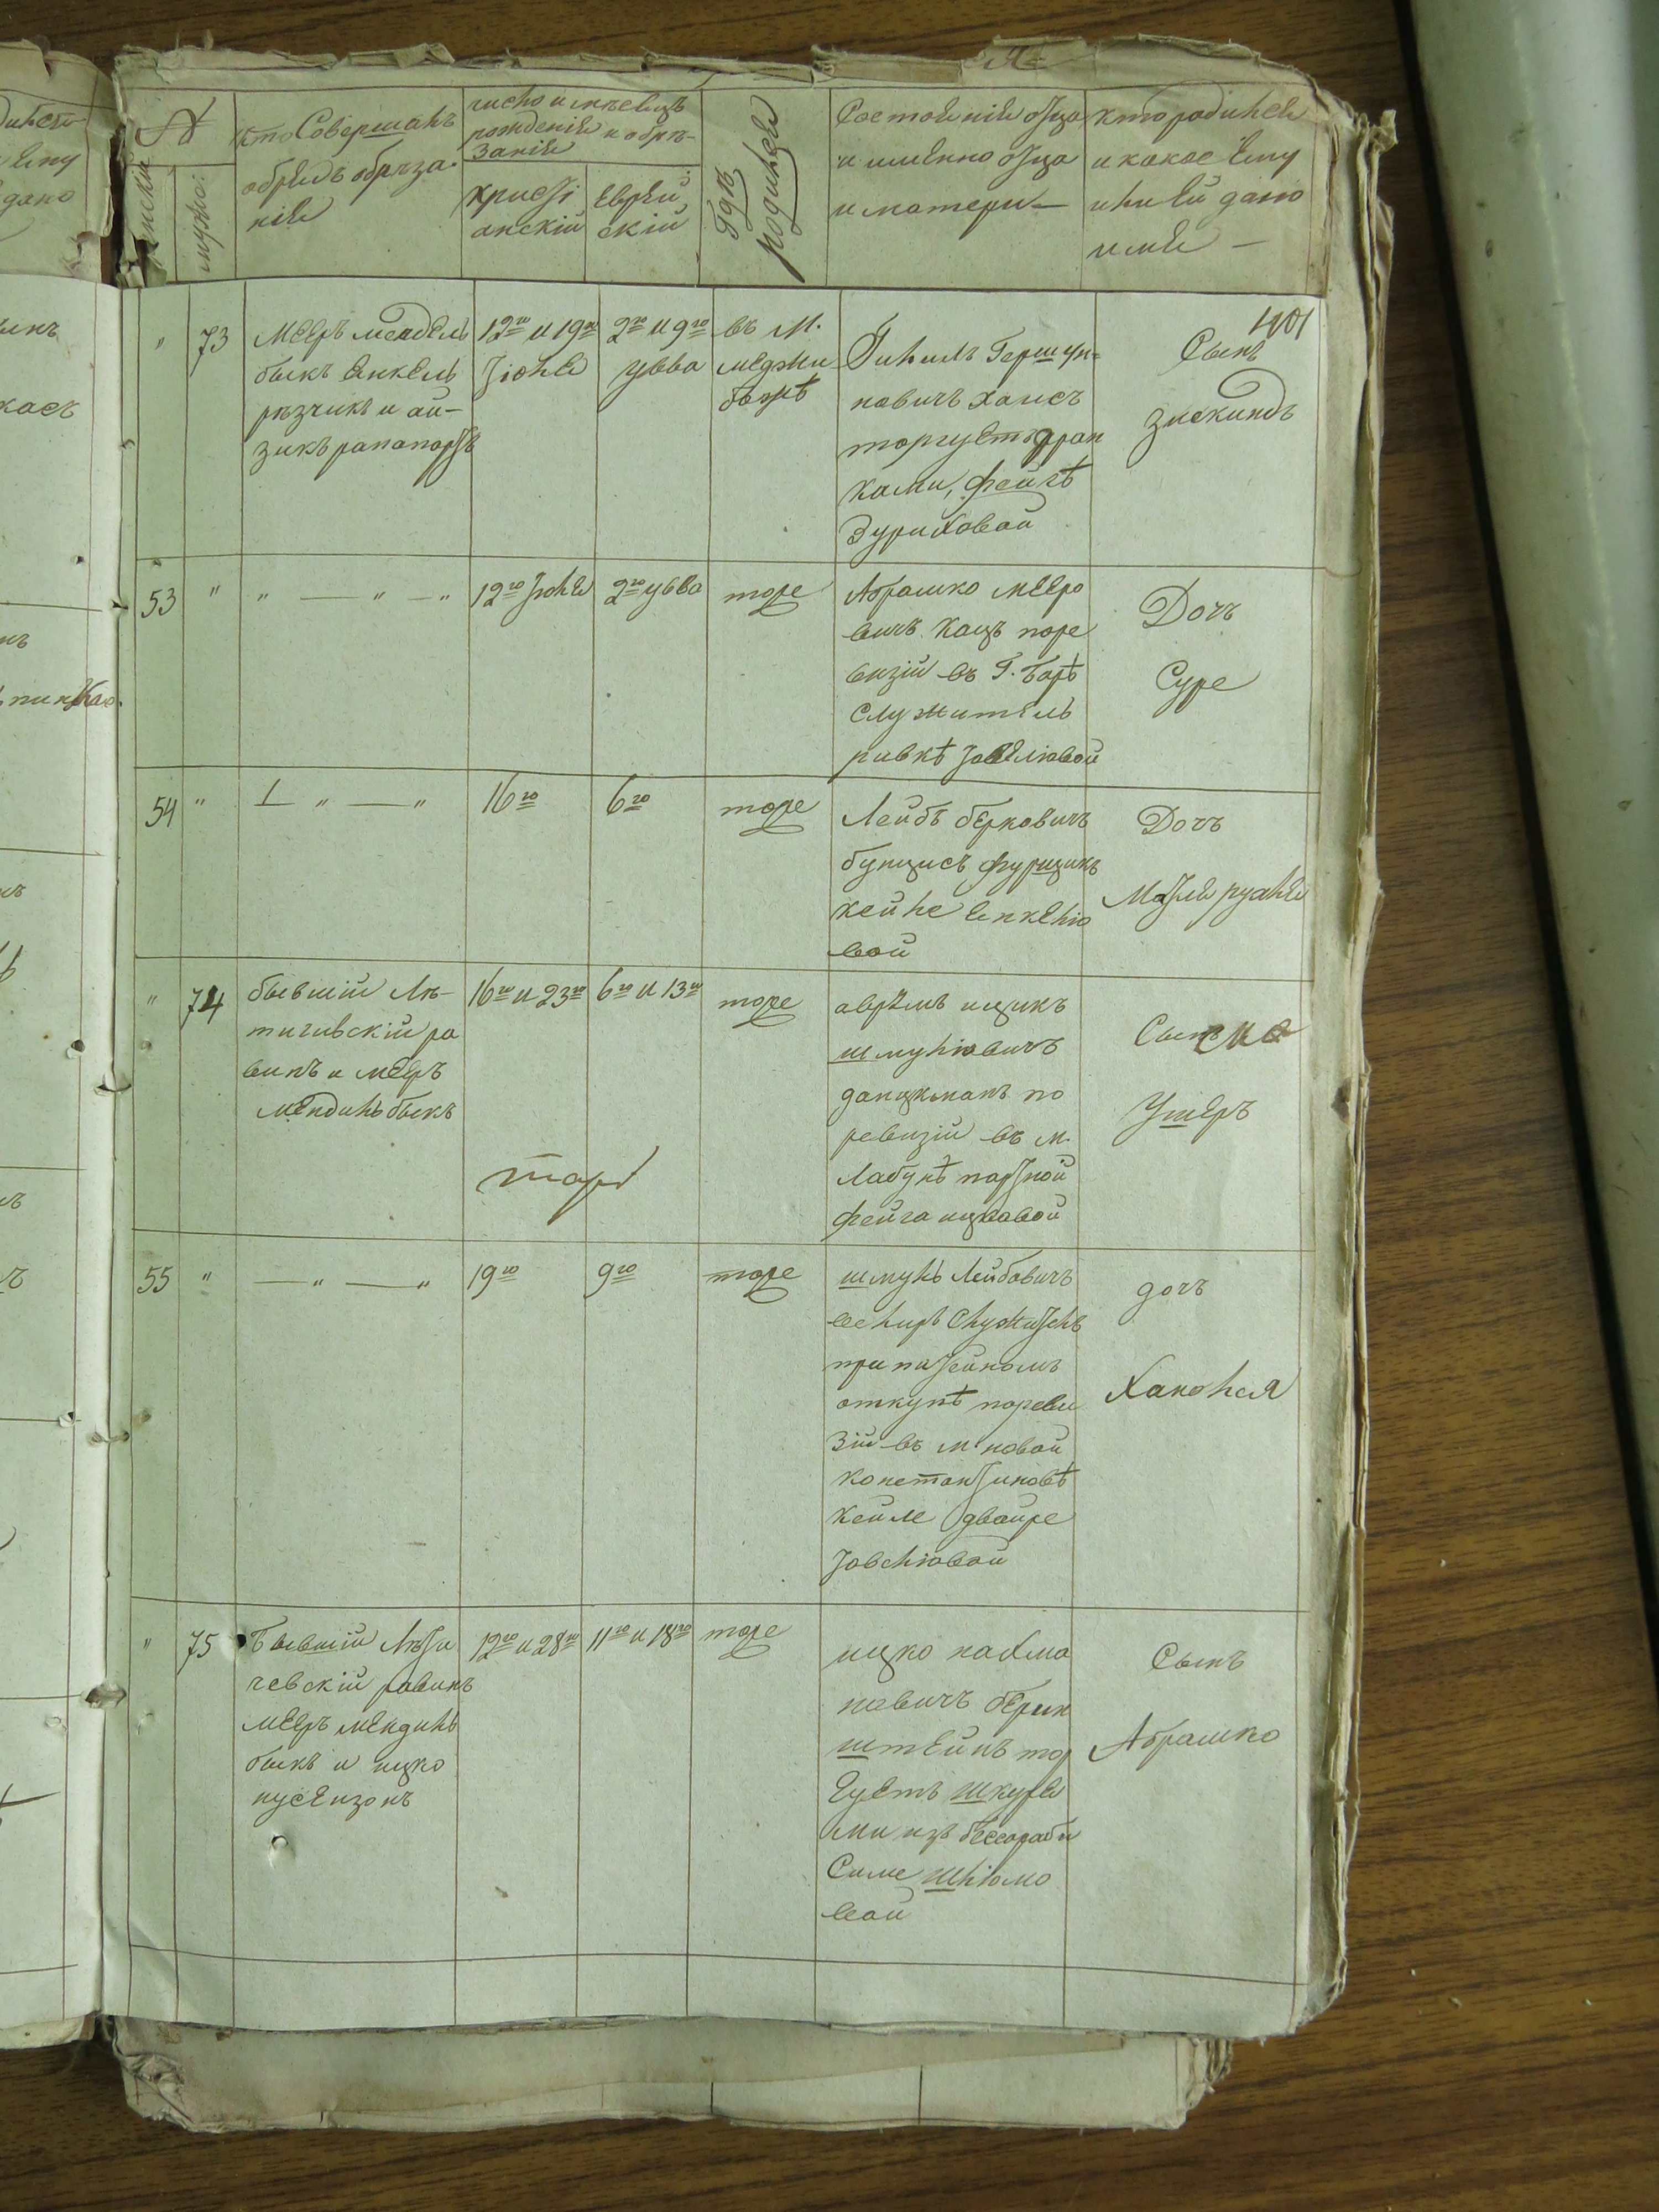 №
женскій
мужо:
кто Совершалъ
обрядъ обреза
нія
число и месецъ
рожденія и обре-
занія
христі
анскій
Еврей
скій
Где
родился
Состояніе отца
и именно отца
и матери —
кто родился
и какое Ему
или Ей дано
имя —
401
" 73
Мееръ мендель
быкъ Янкель
резчикъ и ай-
зикъ рапапортъ
12го и 19го
Іюля
2го и 9го
увва
въ М.
Меджи
божѣ
Гилиль Гершун-
повичъ Хаисъ
торгуетъ
ками, фейгѣ
Зуриховой
Сынъ
зискиндъ
53 "
" — " — "
12го Іюля
2го увва
тоже
Абрашко Мееро
вичъ Кацъ поре
визіи въ Г. Барѣ
служитель
ривкѣ Іовелювой
Дочъ
Суре
54 "
" — "
16го
6го
тоже
Лейбъ берковичъ
бунцисъ фурщикъ
Кейле Янкелю
вой
Дочъ
Матля
" 74
бывшій Ле-
тичивскій ра
винъ и Мееръ
мендиль быкъ
16го и 23го
6го и 13го
тоже
аврумъ ицикъ
шмулювичъ
данцкманъ по
ревизіи въ м.
Лабунѣ портной
фейга ицковой
Сынъ
Ушеръ
55 "
— " — "
19го
9го
тоже
шмуль Лейбовичъ
служитель
при питейномъ
откупѣ пореви
зіи въ м новой
константиновѣ
Кейле двойре
Іовелювой
дочъ
Ханолея
" 75
Бывшій Лети
чевскій равинъ
мееръ мендиль
быкъ и ицко
нусензонъ
12го и 28го
11го и 18го
тоже
ицко нахма
новичъ берин
штейнъ тор
гуетъ шкуря
ми изъ бессараби
Симе шлiомо
вой
Сынъ
Абрашко